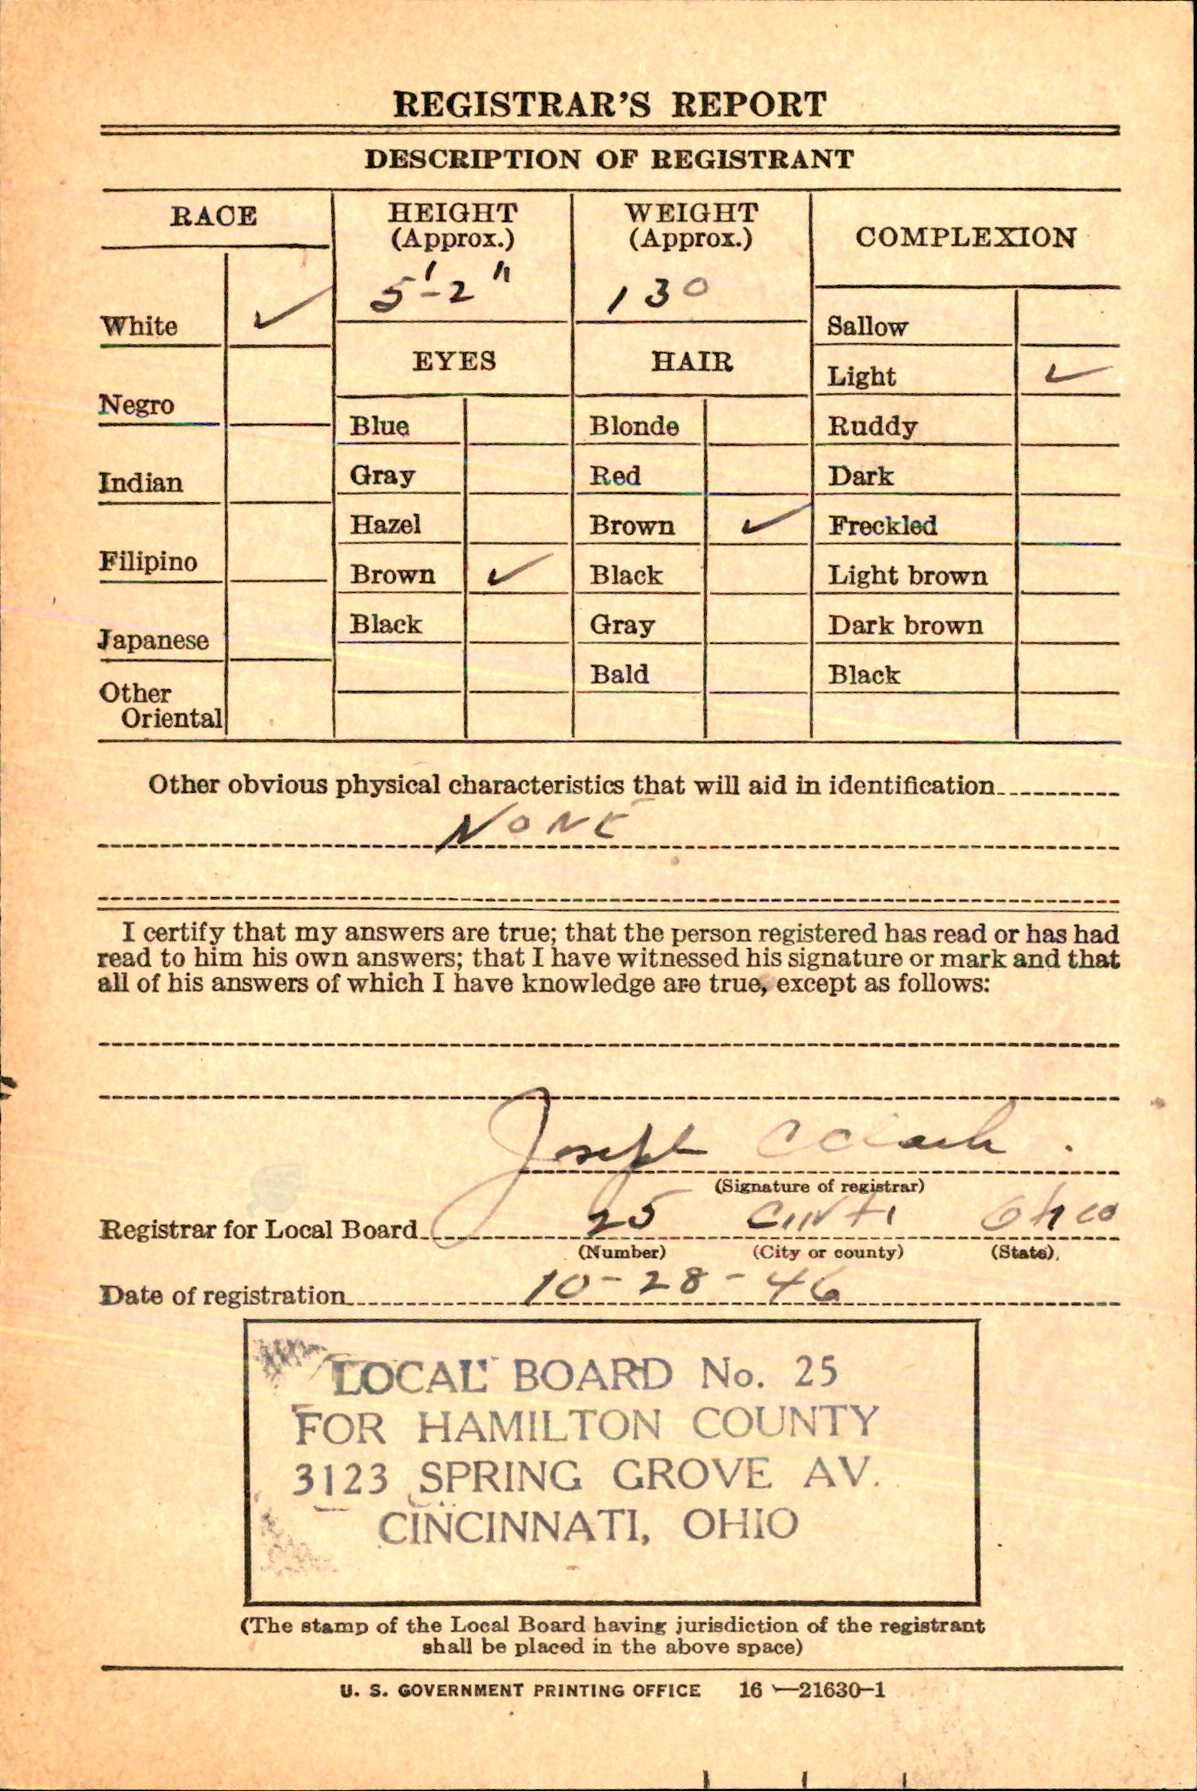 REGISTRAR'S REPORT
DESCRIPTION OF REGISTRANT
RACE
White ✓
Negro
Indian
Filipino
Japanese
Other
Oriental
HEIGHT
(Approx.)
5'-2"
EYES
Blue
Gray
Hazel
Brown ✓
Black
WEIGHT
(Approx.)
130
HAIR
Blonde
Red
Brown ✓
Black
Gray
Bald
COMPLEXION
Sallow
Light ✓
Ruddy
Dark
Freckled
Light brown
Dark brown
Black
Other obvious physical characteristics that will aid in identification
NONE
I certify that my answers are true; that the person registered has read or has had
read to him his own answers; that I have witnessed his signature or mark and that
all of his answers of which I have knowledge are true, except as follows:
Joseph C
(Signature of registrar)
Registrar for Local Board 25 Cinti Ohio
(Number) (City or county) (State)
Date of registration 10-28-46
LOCAL BOARD No. 25
FOR HAMILTON COUNTY
3123 SPRING GROVE AV.
CINCINNATI, OHIO
(The stamp of the Local Board having jurisdiction of the registrant
shall be placed in the above space)
U. S. GOVERNMENT PRINTING OFFICE 16—21630-1